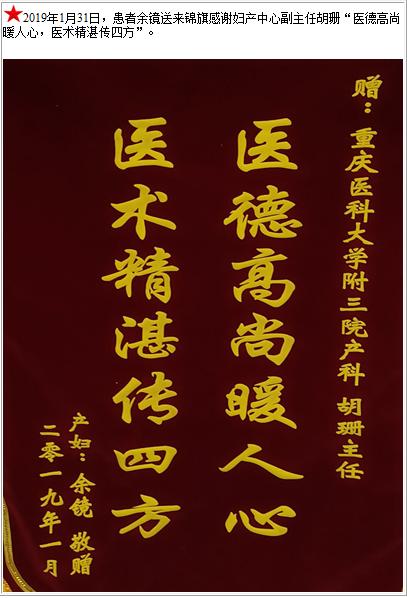 2019年1月31日，患者余镜送来锦旗感谢妇产中心副主任胡珊“医德高尚
暖人心，医术精湛传四方”。
赠：重庆医科大学附三院产科 胡珊主任
医德高尚暖人心
医术精湛传四方
产妇：余镜 敬赠
二零一九年一月